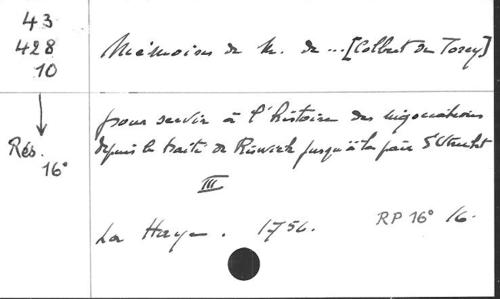 43
428
10
Mémoires de M. de ... [Colbert de Torcy]
pour servir à l'histoire des négociations
depuis le traité de Riswick jusqu'à la paix d'Utrecht
Rés.
16°
III
La Haye. 1756.
RP 16° 16.